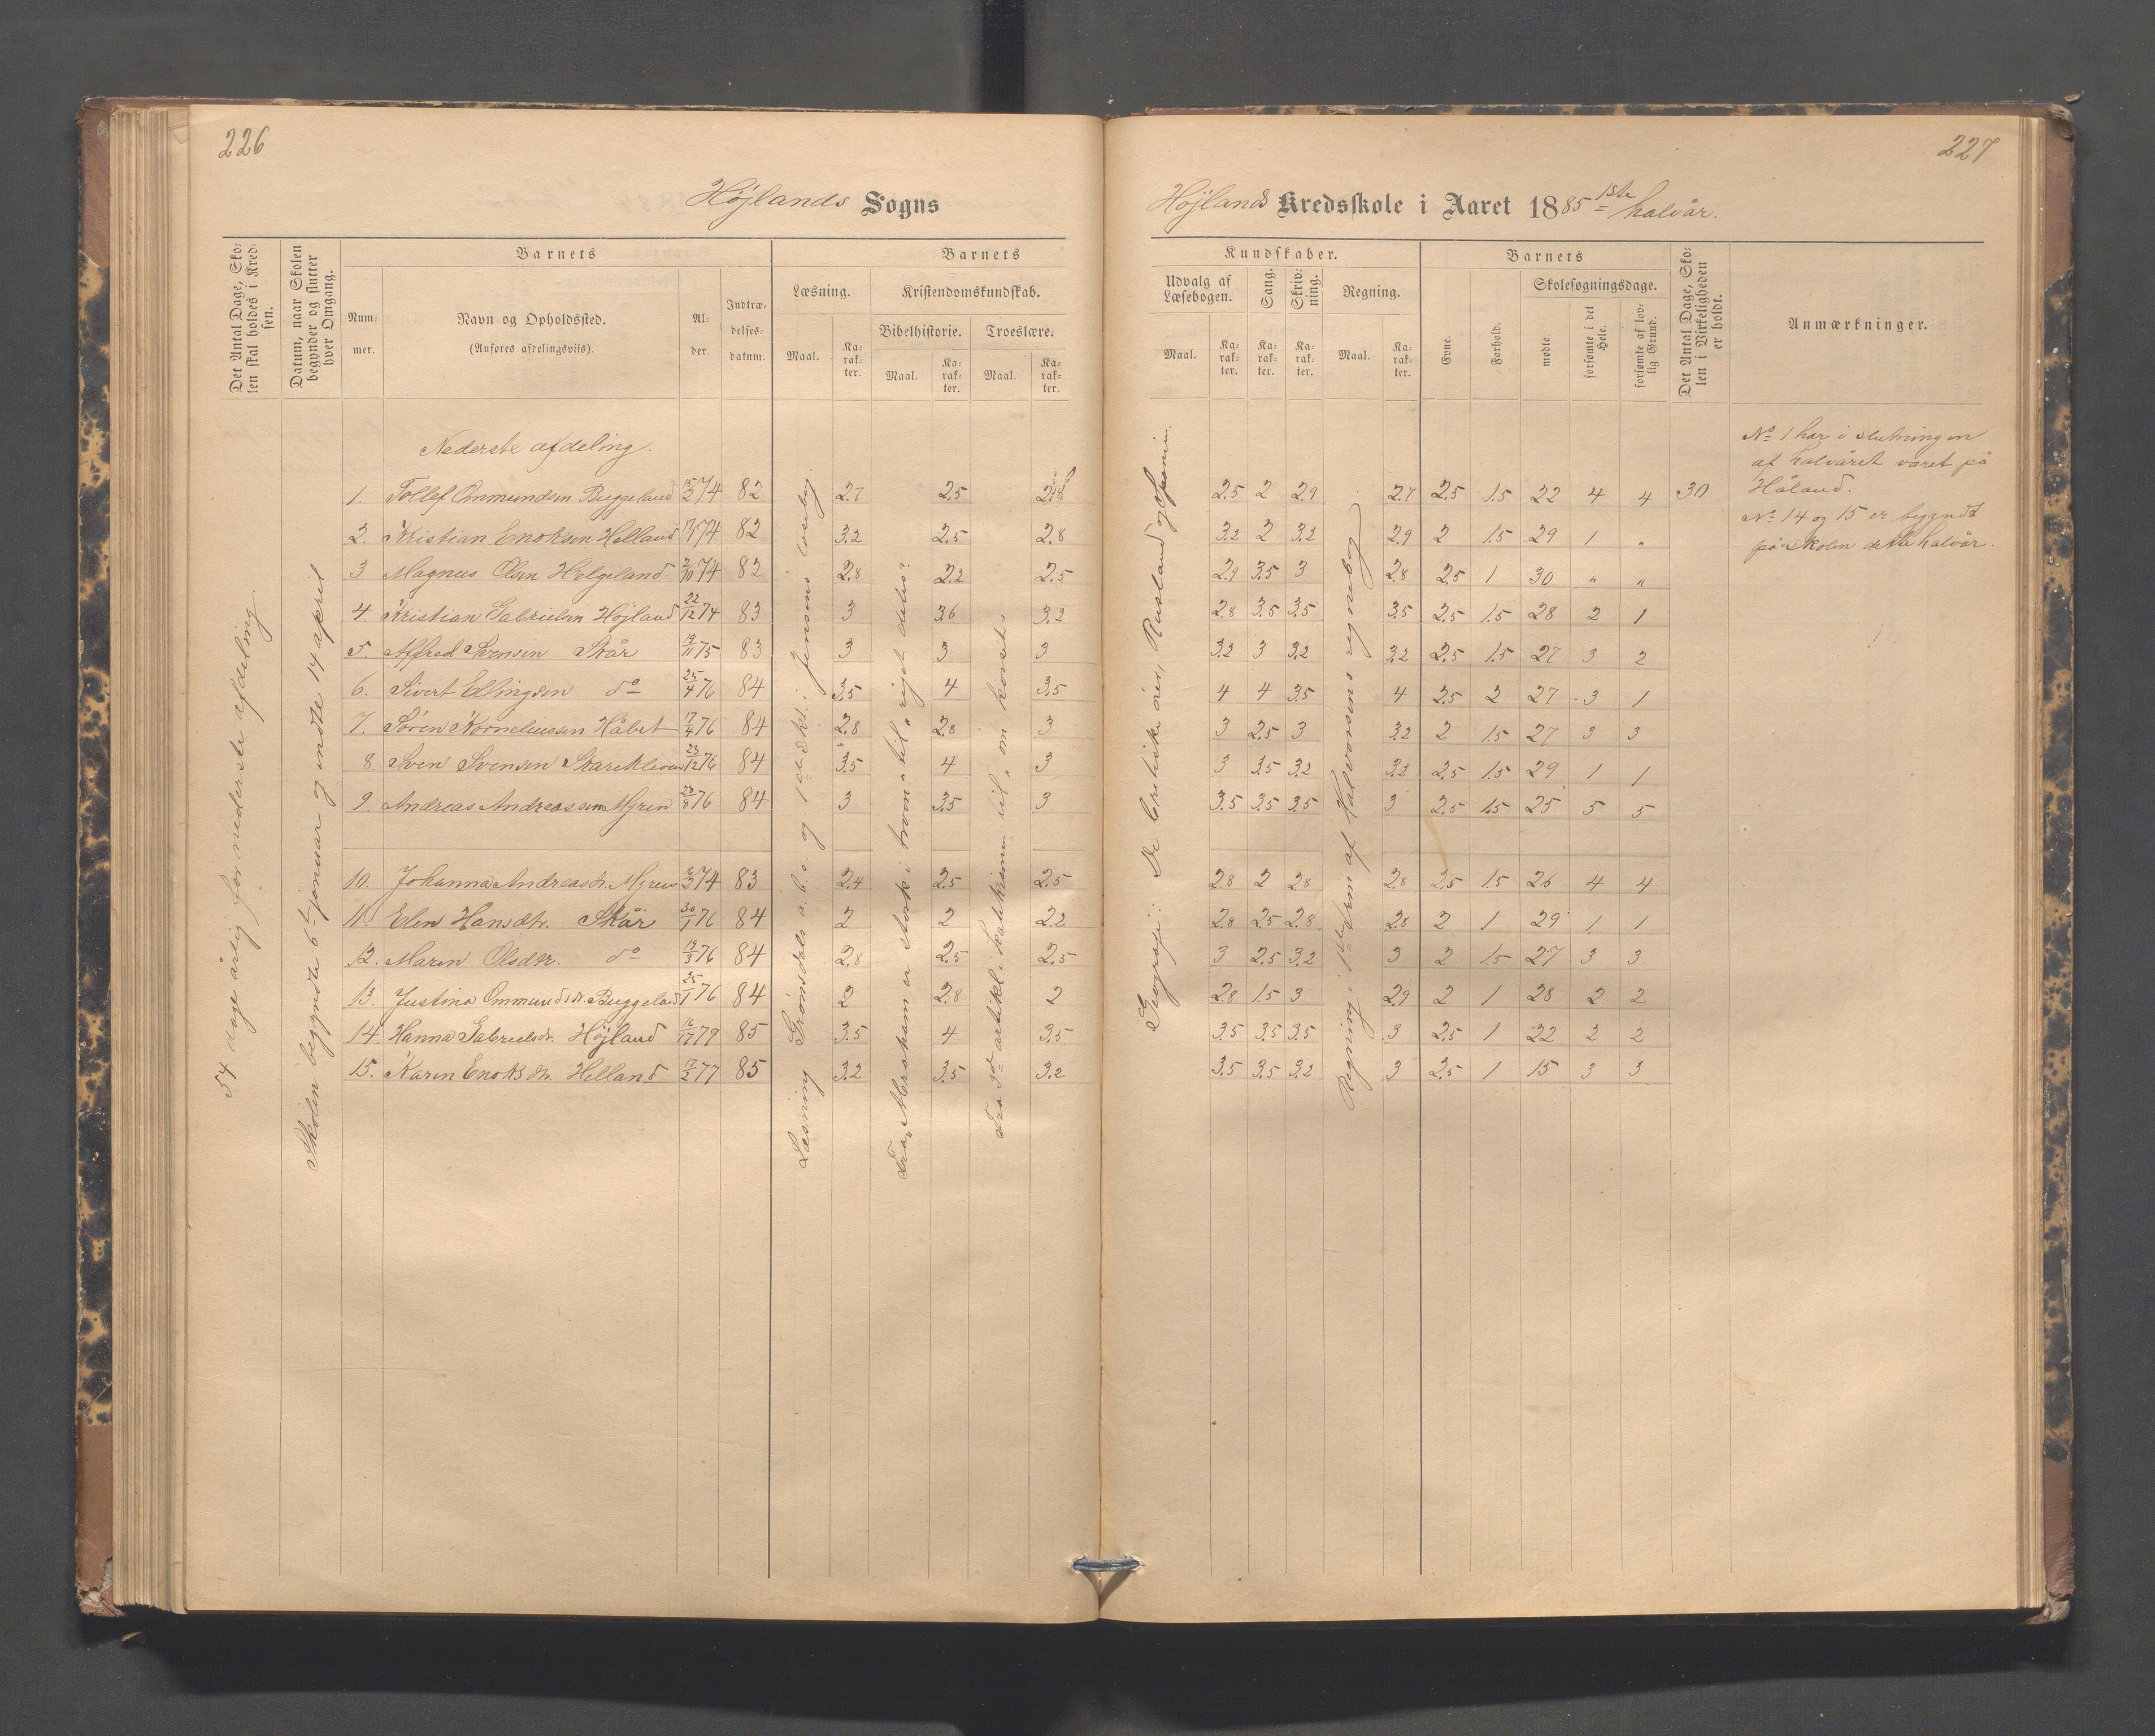 226
Höjlands Sogns
Det Antal Dage, Sko-
len skal holdes i Kred-
sen.
Datum, naar Skolen
begynder og slutter
hver Omgang.
Barnets
Num-
mer.
Navn og Opholdssted.
(Anføres afdelingsviis).
Al-
der.
Indtræ-
delses-
datum.
Barnets
Læsning.
Maal.
Ka-
rak-
ter.
Kristendomskundskab.
Bibelhistorie.
Maal.
Ka-
rak-
ter.
Troeslære.
Maal.
Ka-
rak-
ter.
54 dage årlig for nederste afdeling
Skolen begyndte 6t januar og endte 14 april
Læsning Grönsdals a.b.c. og 1ste skl. i Jensens læsebog
Fra „Abraham er stærk i troen" til „riget deles"
Fra 3die artikel i katekismen til „om korset"
Nederste afdeling.
1. Tollef Ommundsen Buggeland 15/2 74 82 2.7 2.5
2. Kristian Enoksen Helland 74 82 3.2 2.5 2.8
3 Magnus Olsen Helgeland 2/10 74 82 2.8 2.2 2.5
4. Kristian Gabrielsen Höjland 22/12 74 83 3 3.6 3.2
5. Alfred Svensen Skår 19/11 75 83 3 3 3
6. Sivert Ellingsen do 25/4 76 84 3.5 4 3.5
7. Sören Korneliussen Håbet 17/4 76 84 2.8 2.8 3
8. Sven Svensen Skarekleven 23/12 76 84 3.5 4 3
9. Andreas Andreassen Myren 28/8 76 84 3 3.5 3
10. Johanna Andreasdr. Myren 6/2 74 83 2.4 2.5 2.5
11. Elen Hansdtr. Skår 30/1 76 84 2 2 2.2
12. Maren Olsdtr. do 19/3 76 84 2.8 2.5 2.5
13. Justina Ommundsdr. Buggeland 25/1 76 84 2 2.8 2
14. Hanna Gabrielsdr. Höjland 79 85 3.5 4 3.5
15. Karen Enoksdtr. Helland 17/2 77 85 3.2 3.5 3.2
227
Höjlands Kredsskole i Aaret 1885 1ste halvår.
Kundskaber.
Udvalg af
Læsebogen.
Maal.
Ka-
rak-
ter.
Sang.
Ka-
rak-
ter.
Skriv-
ning.
Ka-
rak-
ter.
Regning.
Maal.
Ka-
rak-
ter.
Barnets
Evne.
Forhold.
Skolesøgningsdage.
mødte.
forsømte i det
Hele.
forsømte af lov-
lig Grund.
Det Antal Dage, Sko-
len i Virkeligheden
er holdt.
Anmærkninger.
Geografi: De britiske öer, Rusland og Spanien.
Regning i 1ste trin af Halvorsens regnebog
2.5 2 2.9 2.7 2.5 1.5 22 4 4 30
3.2 2 3.2 2.9 2 1.5 29 1 "
2.9 3.5 3 2.8 2.5 1 30 " "
2.8 3.5 3.5 3.5 2.5 1.5 28 2 1
3.2 3 3.2 3.2 2.5 1.5 27 3 2
4 4 3.5 4 2.5 2 27 3 1
3 2.5 3 3.2 2 1.5 27 3 3
3 3.5 3.2 3.2 2.5 1.5 29 1 1
3.5 3.5 3.5 3 2.5 1.5 25 5 5
2.8 2 2.8 2.8 2.5 1.5 26 4 4
2.8 2.5 2.8 2.8 2 1 29 1 1
3 2.5 3.2 3 2 1.5 27 3 3
2.8 1.5 3 2.9 2 1 28 2 2
3.5 3.5 3.5 3 2.5 1 22 2 2
3.5 3.5 3.2 3 2.5 1 15 3 3
No 1 har i slutningen
af halvåret været på
Håland.
No 14 og 15 er begyndt
på skolen dette halvår.